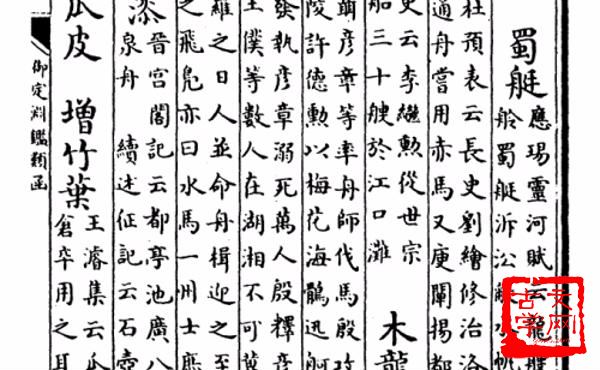 蜀艇
應瑒靈河賦云龍艘
舲蜀艇泝汎
杜預表云長史劉繪修治洛
通舟嘗用赤馬又庾闡揚都
史云李繼勲從世宗
船三十艘於江口灘
木龍
彥章等率舟師伐馬殷攻
陵許德勲以梅花海鶻迅舸
發執彥章溺死萬人殷釋彥
王僕等數人在湖湘不可冀
羅之日人並命舟楫迎之至
之飛鳧亦曰水馬一州士
漆
晉宮閣記云都亭池廣八
泉舟 續述征記云石壺
瓜皮 增竹葉
王濬集云瓜
倉卒用之耳
御定淵鑑類函
古文
学网